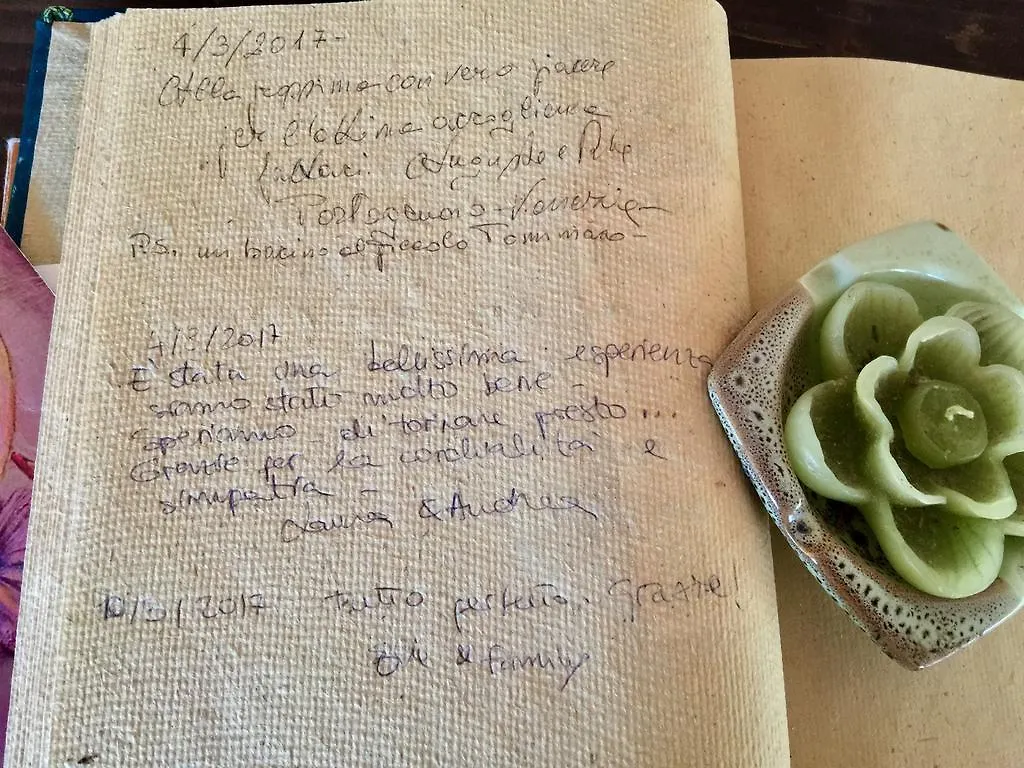 4/3/2017-
con vero piacere
l'ottima accoglienza
Augusto e
Portogruaro - Venezia
P.S. un bacino al piccolo Tommaso -
4/3/2017
È stata una bellissima esperienza
siamo stati molto bene -
speriamo di tornare presto...
Grazie per la cordialità e
simpatia
Laura & Andrea
10/3/2017 tutto perfetto. Grazie!
& family